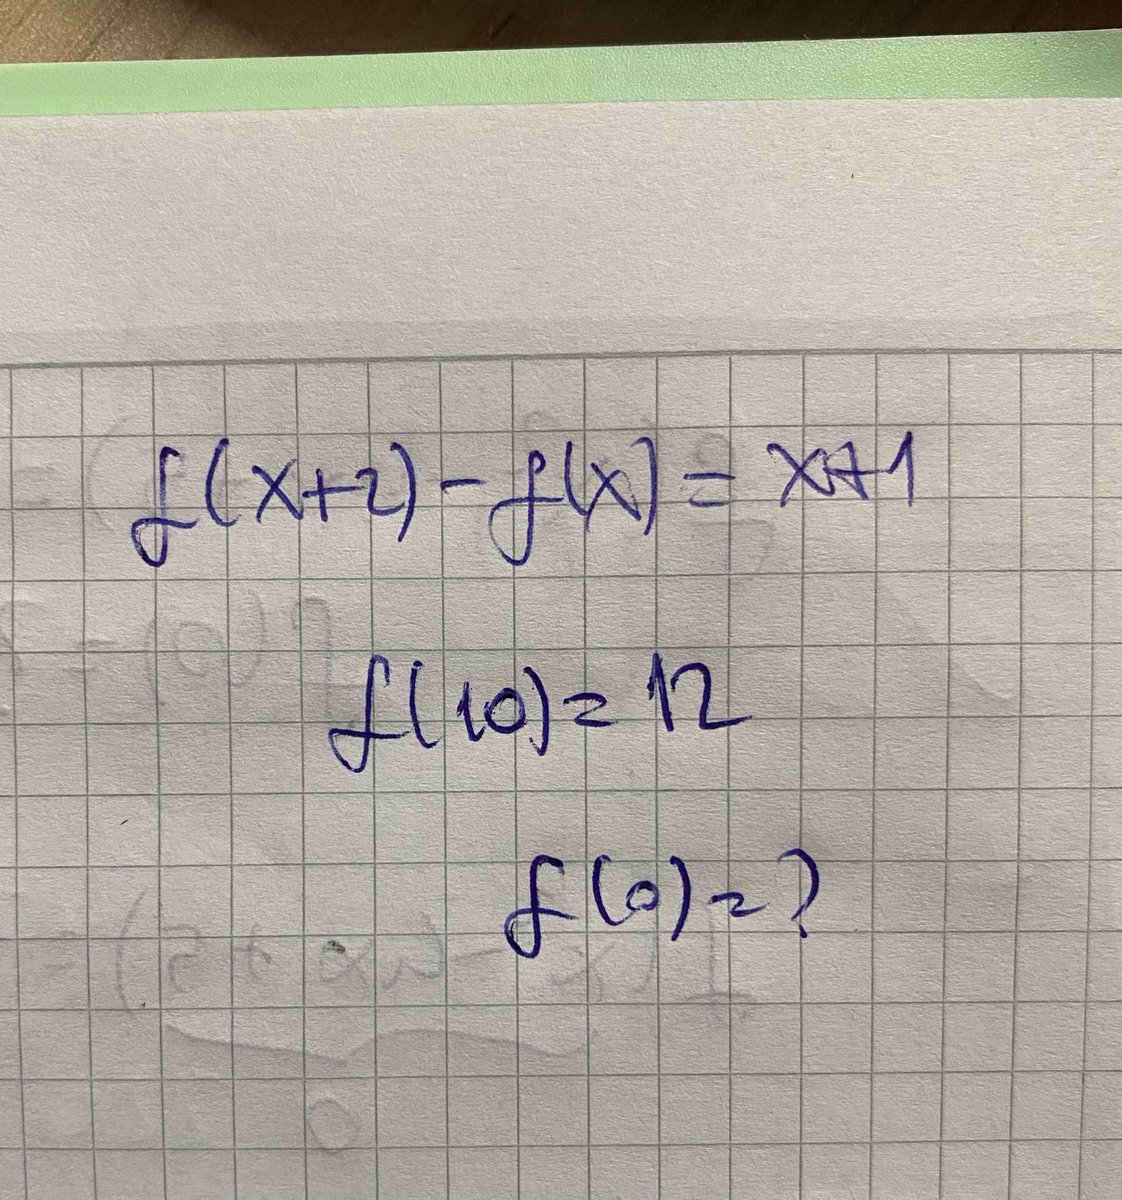 f(x+2)-f(x)=x+1
f(10)=12
f(0)=?